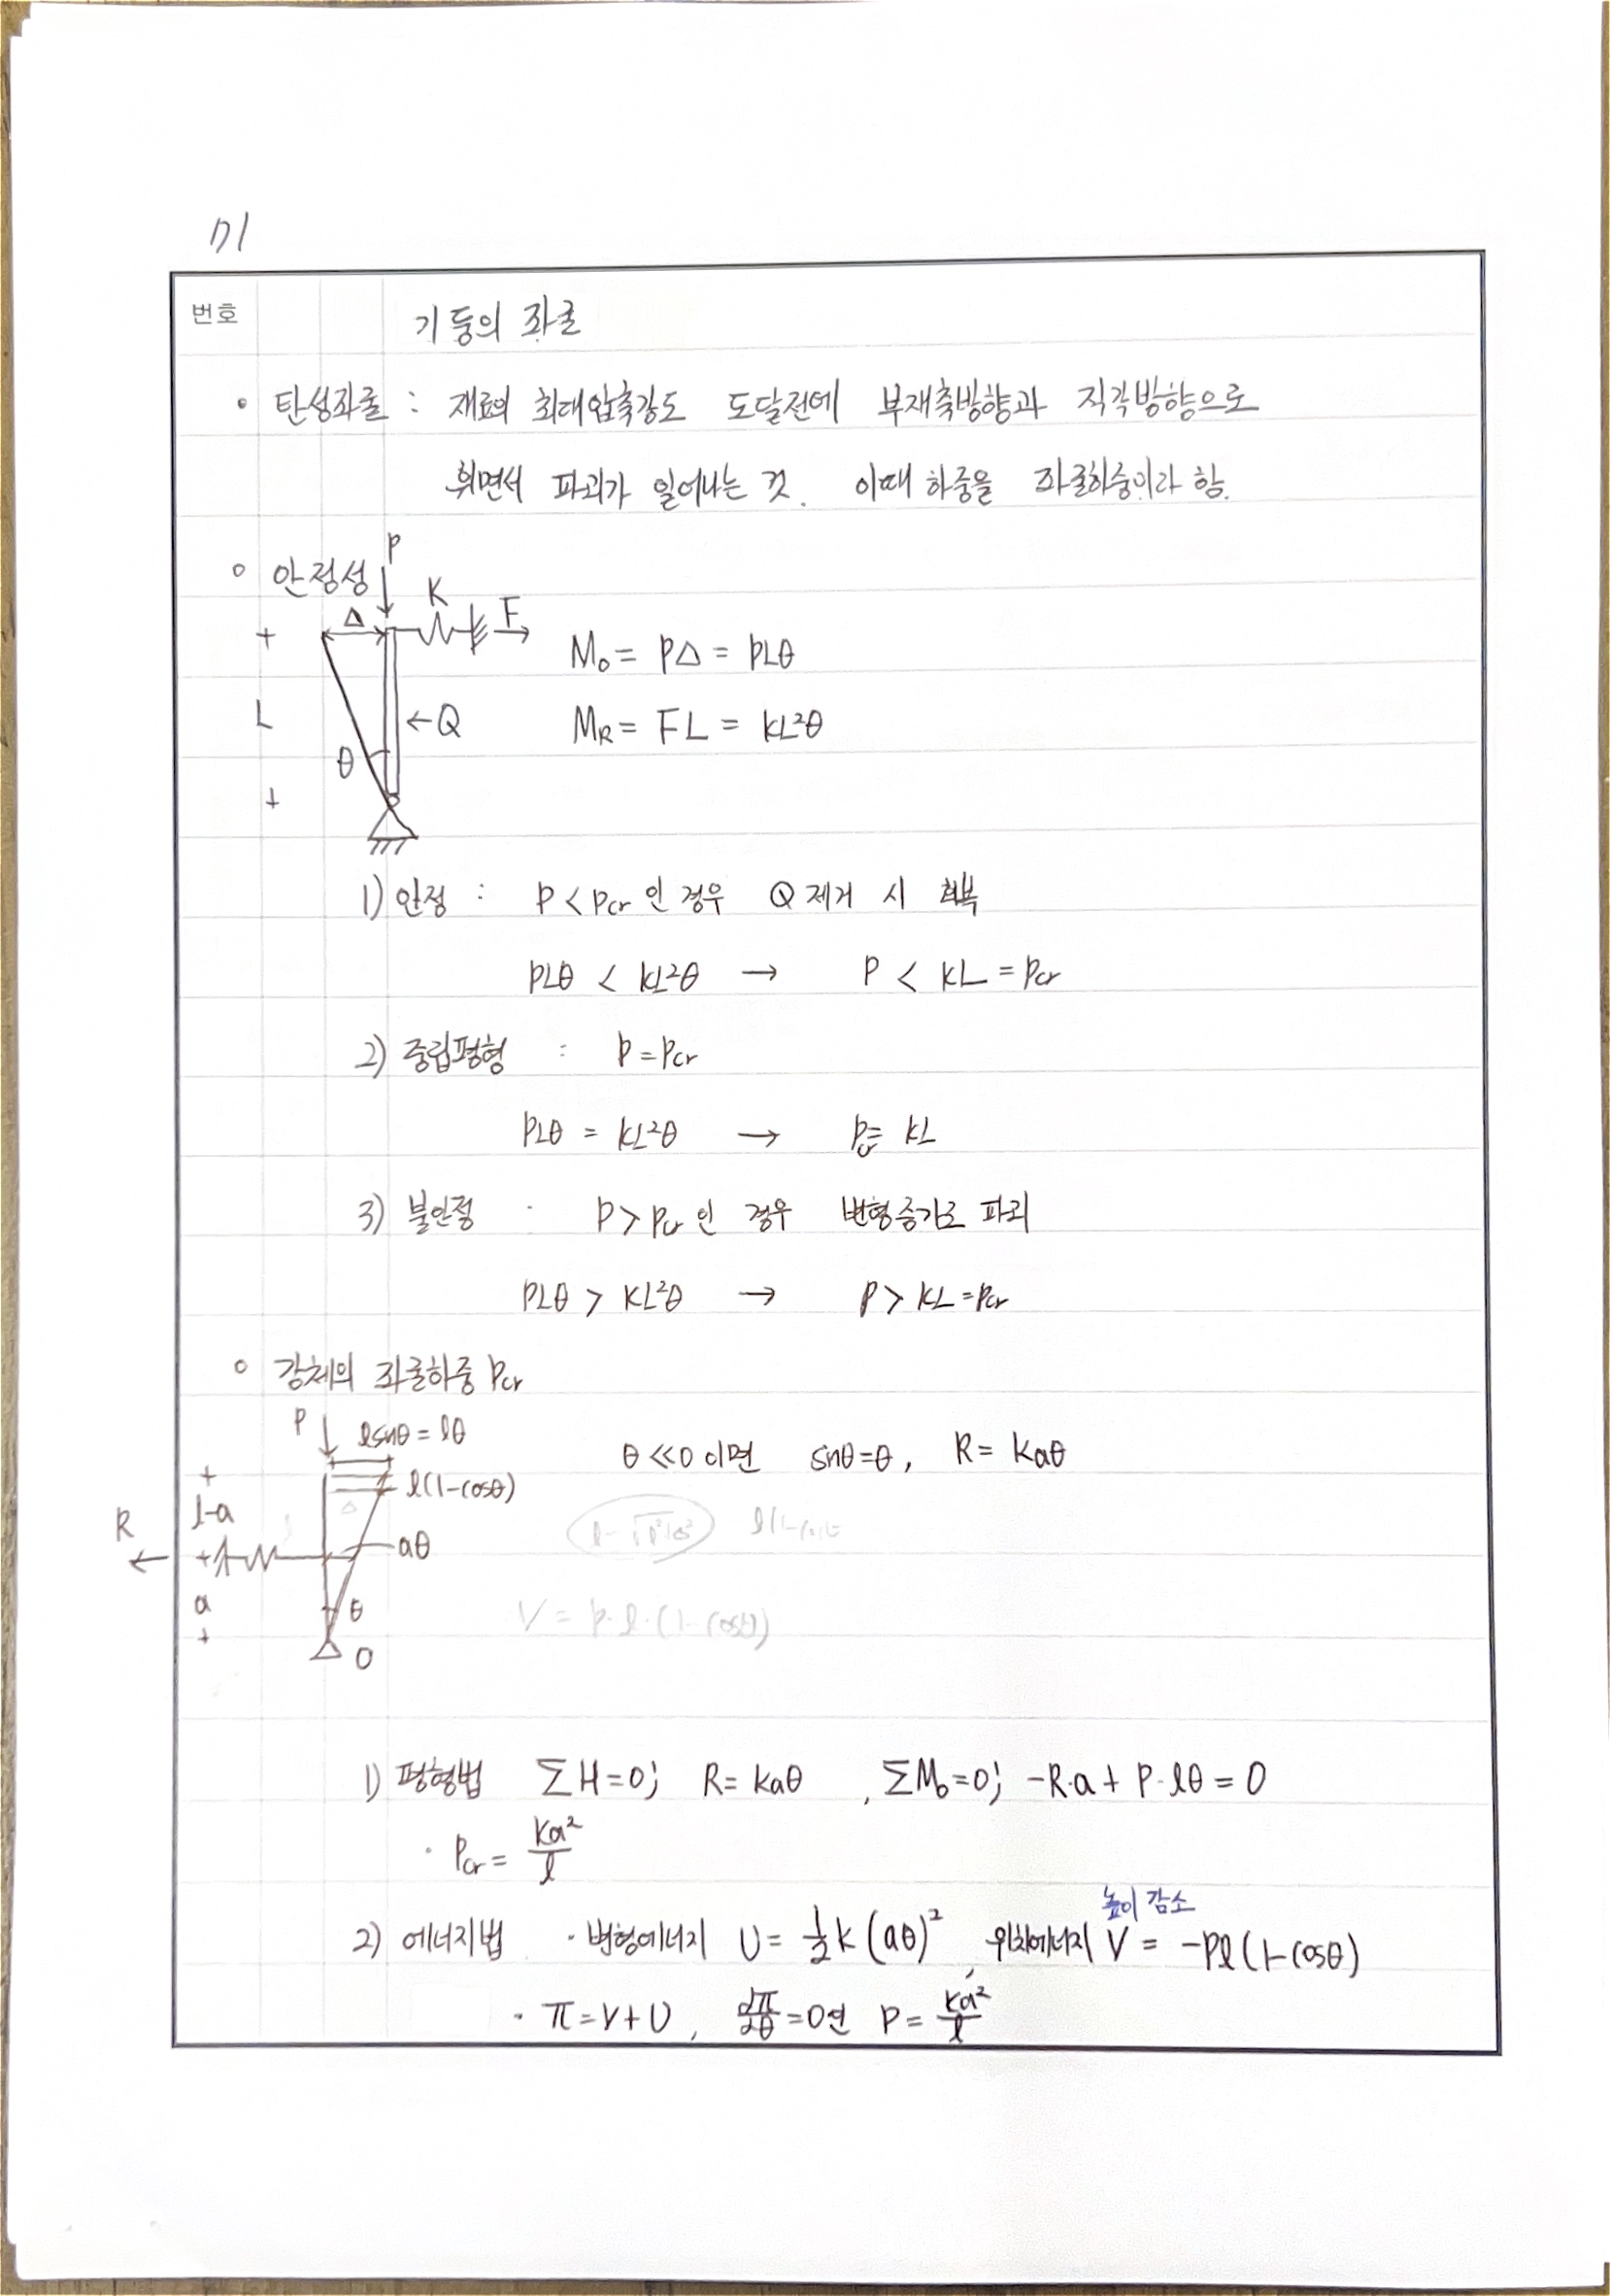 기둥의 좌굴
번호
• 탄성좌굴 : 재료의 최대압축강도 도달전에 부재축방향과 직각방향으로
휘면서 파괴가 일어나는 것. 이때 하중을 좌굴하중이라 함.
○ 안정성
P
K
Δ
F
L
←Q
θ
M₀ = PΔ = PLθ
M_R = FL = KL²θ
1) 안정 : P < Pcr 인 경우 Q 제거 시 회복
PLθ < KL²θ → P < KL = Pcr
2) 중립평형 : P = Pcr
PLθ = KL²θ → Pcr = KL
3) 불안정 : P > Pcr 인 경우 변형증가로 파괴
PLθ > KL²θ → P > KL = Pcr
○ 강체의 좌굴하중 Pcr
P
lsinθ = lθ
l(1-cosθ)
l-a
R
aθ
a
θ
O
θ ≪ 0 이면 sinθ = θ, R = Kaθ
V = P·l·(1-cosθ)
1) 평형법 ΣH=0; R = kaθ , ΣM₀=0; -R·a + P·lθ = 0
· Pcr = Ka²/l
높이 감소
2) 에너지법 · 변형에너지 U = ½k(aθ)², 위치에너지 V = -Pl(1-cosθ)
· π = V + U , dπ/dθ = 0 면 P = Ka²/l